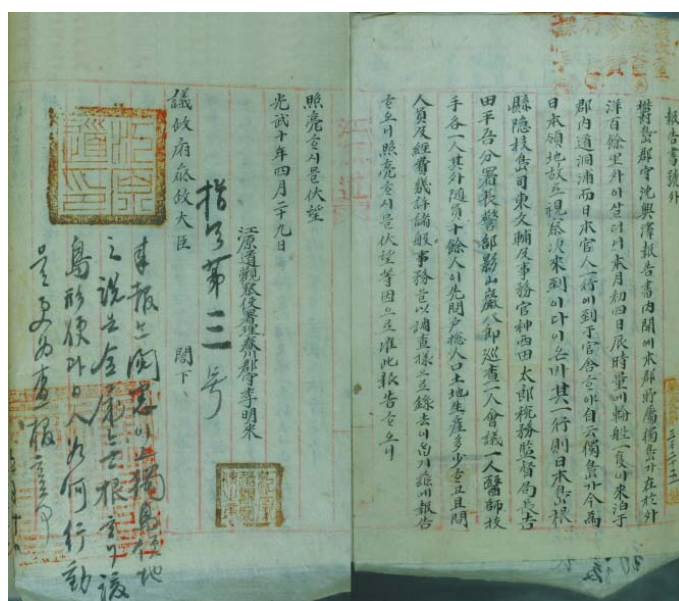 報告書號外
欝島郡守沈興澤報告書內開에本郡所屬獨島가在於外
洋百餘里外이살더니本月初四日辰時量에輪船一隻이來泊于
郡內道洞浦而日本官人一行이到于官舍ᄒᆞ야自云獨島가今爲
日本領地故로視察次來到이다이온바其一行則日本島根
縣隱技島司東文輔及事務官神西田太郞稅務監督局長吉
田平吾分署長警部影山巖八郞巡查一人會議一人醫師技
手各一人其外隨員十餘人이先問戶摠人口土地生產多少ᄒᆞ고且問
人員及經費幾許諸般事務를以調查樣으로錄去이ᄋᆞᆸ기玆에報告
ᄒᆞ오니照亮ᄒᆞ시믈伏望等因으로准此報告ᄒᆞ오니
照亮ᄒᆞ시믈伏望
光武十年四月二十九日
江原道觀察使署理春川郡守李明來
議政府參政大臣 閤下
指令第三号
來報는閱悉이고獨島領地
之說은全屬無根ᄒᆞ나該
島形便과日人如何行動
을更爲查報ᄒᆞᆯ事